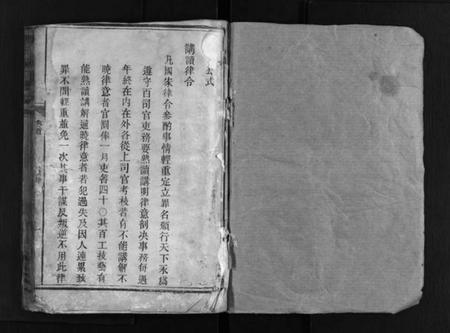 公式
講讀律令
凡國家律令參酌事情輕重定立罪名頒行天下永爲
遵守百司官吏務要熟讀講明律意剖決事務每遇
年終在內在外各從上司官考校若有不能講解不
曉律意者官罰俸一月吏笞四十〇其百工技藝有
能熟讀講解通曉律意者若犯過失及因人連累致
罪不問輕重並免一次其事干謀反叛逆不用此律